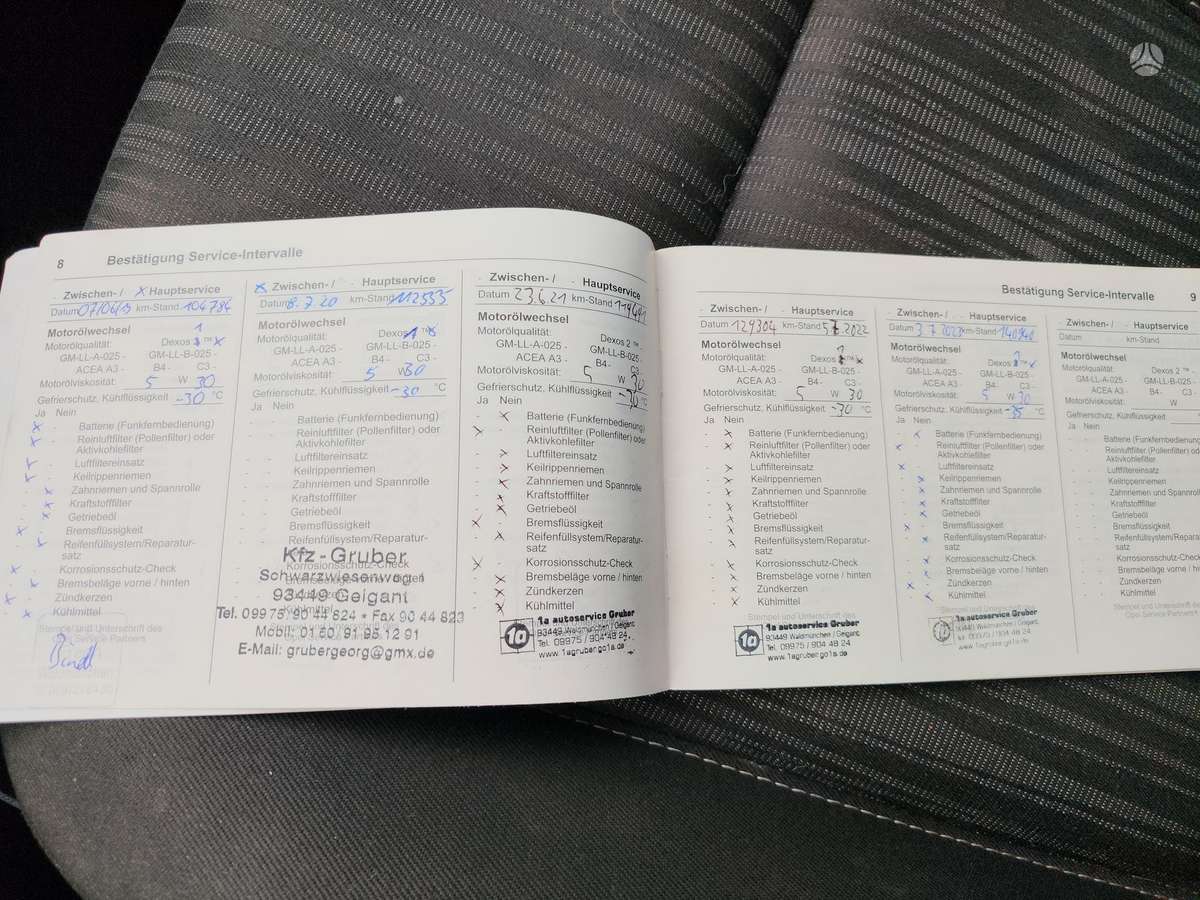 8 Bestätigung Service-Intervalle
Zwischen- / X Hauptservice
Datum 07/06/19 km-Stand 104784
Motorölwechsel
1
Motorölqualität: Dexos ™ x
GM-LL-A-025 - GM-LL-B-025 -
ACEA A3 - B4 - C3 -
Motorölviskosität: 5 W 30
Gefrierschutz, Kühlflüssigkeit -30 °C
Ja Nein
Batterie (Funkfernbedienung)
Reinluftfilter (Pollenfilter) oder
Aktivkohlefilter
Luftfiltereinsatz
Keilrippenriemen
Zahnriemen und Spannrolle
Kraftstofffilter
Getriebeöl
Bremsflüssigkeit
Reifenfüllsystem/Reparatur-
satz
Korrosionsschutz-Check
Bremsbeläge vorne / hinten
Zündkerzen
Kühlmittel
Stempel und Unterschrift des
Opel Service Partners
x Zwischen- / Hauptservice
Datum 8.7.20 km-Stand 112535
Motorölwechsel
Motorölqualität: Dexos 1 ™ x
GM-LL-A-025 - GM-LL-B-025 -
ACEA A3 - B4 - C3 -
Motorölviskosität: 5 W 30
Gefrierschutz, Kühlflüssigkeit -30 °C
Ja Nein
Batterie (Funkfernbedienung)
Reinluftfilter (Pollenfilter) oder
Aktivkohlefilter
Luftfiltereinsatz
Keilrippenriemen
Zahnriemen und Spannrolle
Kraftstofffilter
Getriebeöl
Bremsflüssigkeit
Reifenfüllsystem/Reparatur-
satz
Kfz-Gruber
Schwarzwiesenweg 1
93449 Geigant
Tel. 09975/90 44 824 * Fax 90 44 823
Mobil: 01 60/91 95 12 91
E-Mail: grubergeorg@gmx.de
Zwischen- / Hauptservice
Datum 23.6.21 km-Stand 119491
Motorölwechsel
Motorölqualität: Dexos 2 ™ -
GM-LL-A-025 - GM-LL-B-025 -
ACEA A3 - B4 - C3 -
Motorölviskosität: 5 W 30
Gefrierschutz, Kühlflüssigkeit -30 °C
Ja Nein
Batterie (Funkfernbedienung)
Reinluftfilter (Pollenfilter) oder
Aktivkohlefilter
Luftfiltereinsatz
Keilrippenriemen
Zahnriemen und Spannrolle
Kraftstofffilter
Getriebeöl
Bremsflüssigkeit
Reifenfüllsystem/Reparatur-
satz
Korrosionsschutz-Check
Bremsbeläge vorne / hinten
Zündkerzen
Kühlmittel
1a 1a autoservice Gruber
93449 Waldmünchen / Geigant
Tel. 09975 / 904 48 24
www.1agruber.go1a.de
Bestätigung Service-Intervalle 9
Zwischen- / Hauptservice
Datum 129304 km-Stand 5.7.2022
Motorölwechsel
1
Motorölqualität: Dexos ™ x
GM-LL-A-025 - GM-LL-B-025 -
ACEA A3 - B4 - C3 -
Motorölviskosität: 5 W 30
Gefrierschutz, Kühlflüssigkeit -30 °C
Ja Nein
Batterie (Funkfernbedienung)
Reinluftfilter (Pollenfilter) oder
Aktivkohlefilter
Luftfiltereinsatz
Keilrippenriemen
Zahnriemen und Spannrolle
Kraftstofffilter
Getriebeöl
Bremsflüssigkeit
Reifenfüllsystem/Reparatur-
satz
Korrosionsschutz-Check
Bremsbeläge vorne / hinten
Zündkerzen
Kühlmittel
1a 1a autoservice Gruber
93449 Waldmünchen / Geigant
Tel. 09975 / 904 48 24
www.1agruber.go1a.de
Zwischen- / Hauptservice
Datum 3.7.2023 km-Stand 140940
Motorölwechsel
1
Motorölqualität: Dexos ™ x
GM-LL-A-025 - GM-LL-B-025 -
ACEA A3 - B4 - C3 -
Motorölviskosität: 5 W 30
Gefrierschutz, Kühlflüssigkeit °C
Ja Nein
Batterie (Funkfernbedienung)
Reinluftfilter (Pollenfilter) oder
Aktivkohlefilter
Luftfiltereinsatz
Keilrippenriemen
Zahnriemen und Spannrolle
Kraftstofffilter
Getriebeöl
Bremsflüssigkeit
Reifenfüllsystem/Reparatur-
satz
Korrosionsschutz-Check
Bremsbeläge vorne / hinten
Zündkerzen
Kühlmittel
Stempel und Unterschrift des
1a autoservice Gruber
93449 Waldmünchen / Geigant
Tel. 09975 / 904 48 24
www.1agruber.go1a.de
Zwischen- / Hauptservice
Datum km-Stand
Motorölwechsel
Motorölqualität: Dexos 2 ™
GM-LL-A-025 - GM-LL-B-025
ACEA A3 - B4 - C3
Motorölviskosität: W
Gefrierschutz, Kühlflüssigkeit
Ja Nein
Batterie (Funkfernbedienung)
Reinluftfilter (Pollenfilter)
Aktivkohlefilter
Luftfiltereinsatz
Keilrippenriemen
Zahnriemen und Spannrolle
Kraftstofffilter
Getriebeöl
Bremsflüssigkeit
Reifenfüllsystem/Reparatur-
satz
Korrosionsschutz-Check
Bremsbeläge vorne / hinten
Zündkerzen
Kühlmittel
Stempel und Unterschrift
Opel Service Partners